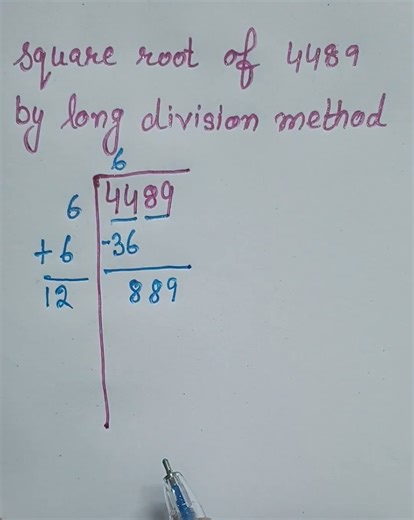 square root of 4489
by long division method
6
6 4489
+6 -36
12 889